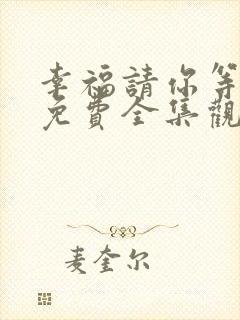 幸福請你等
免費全集觀
麦奎尔